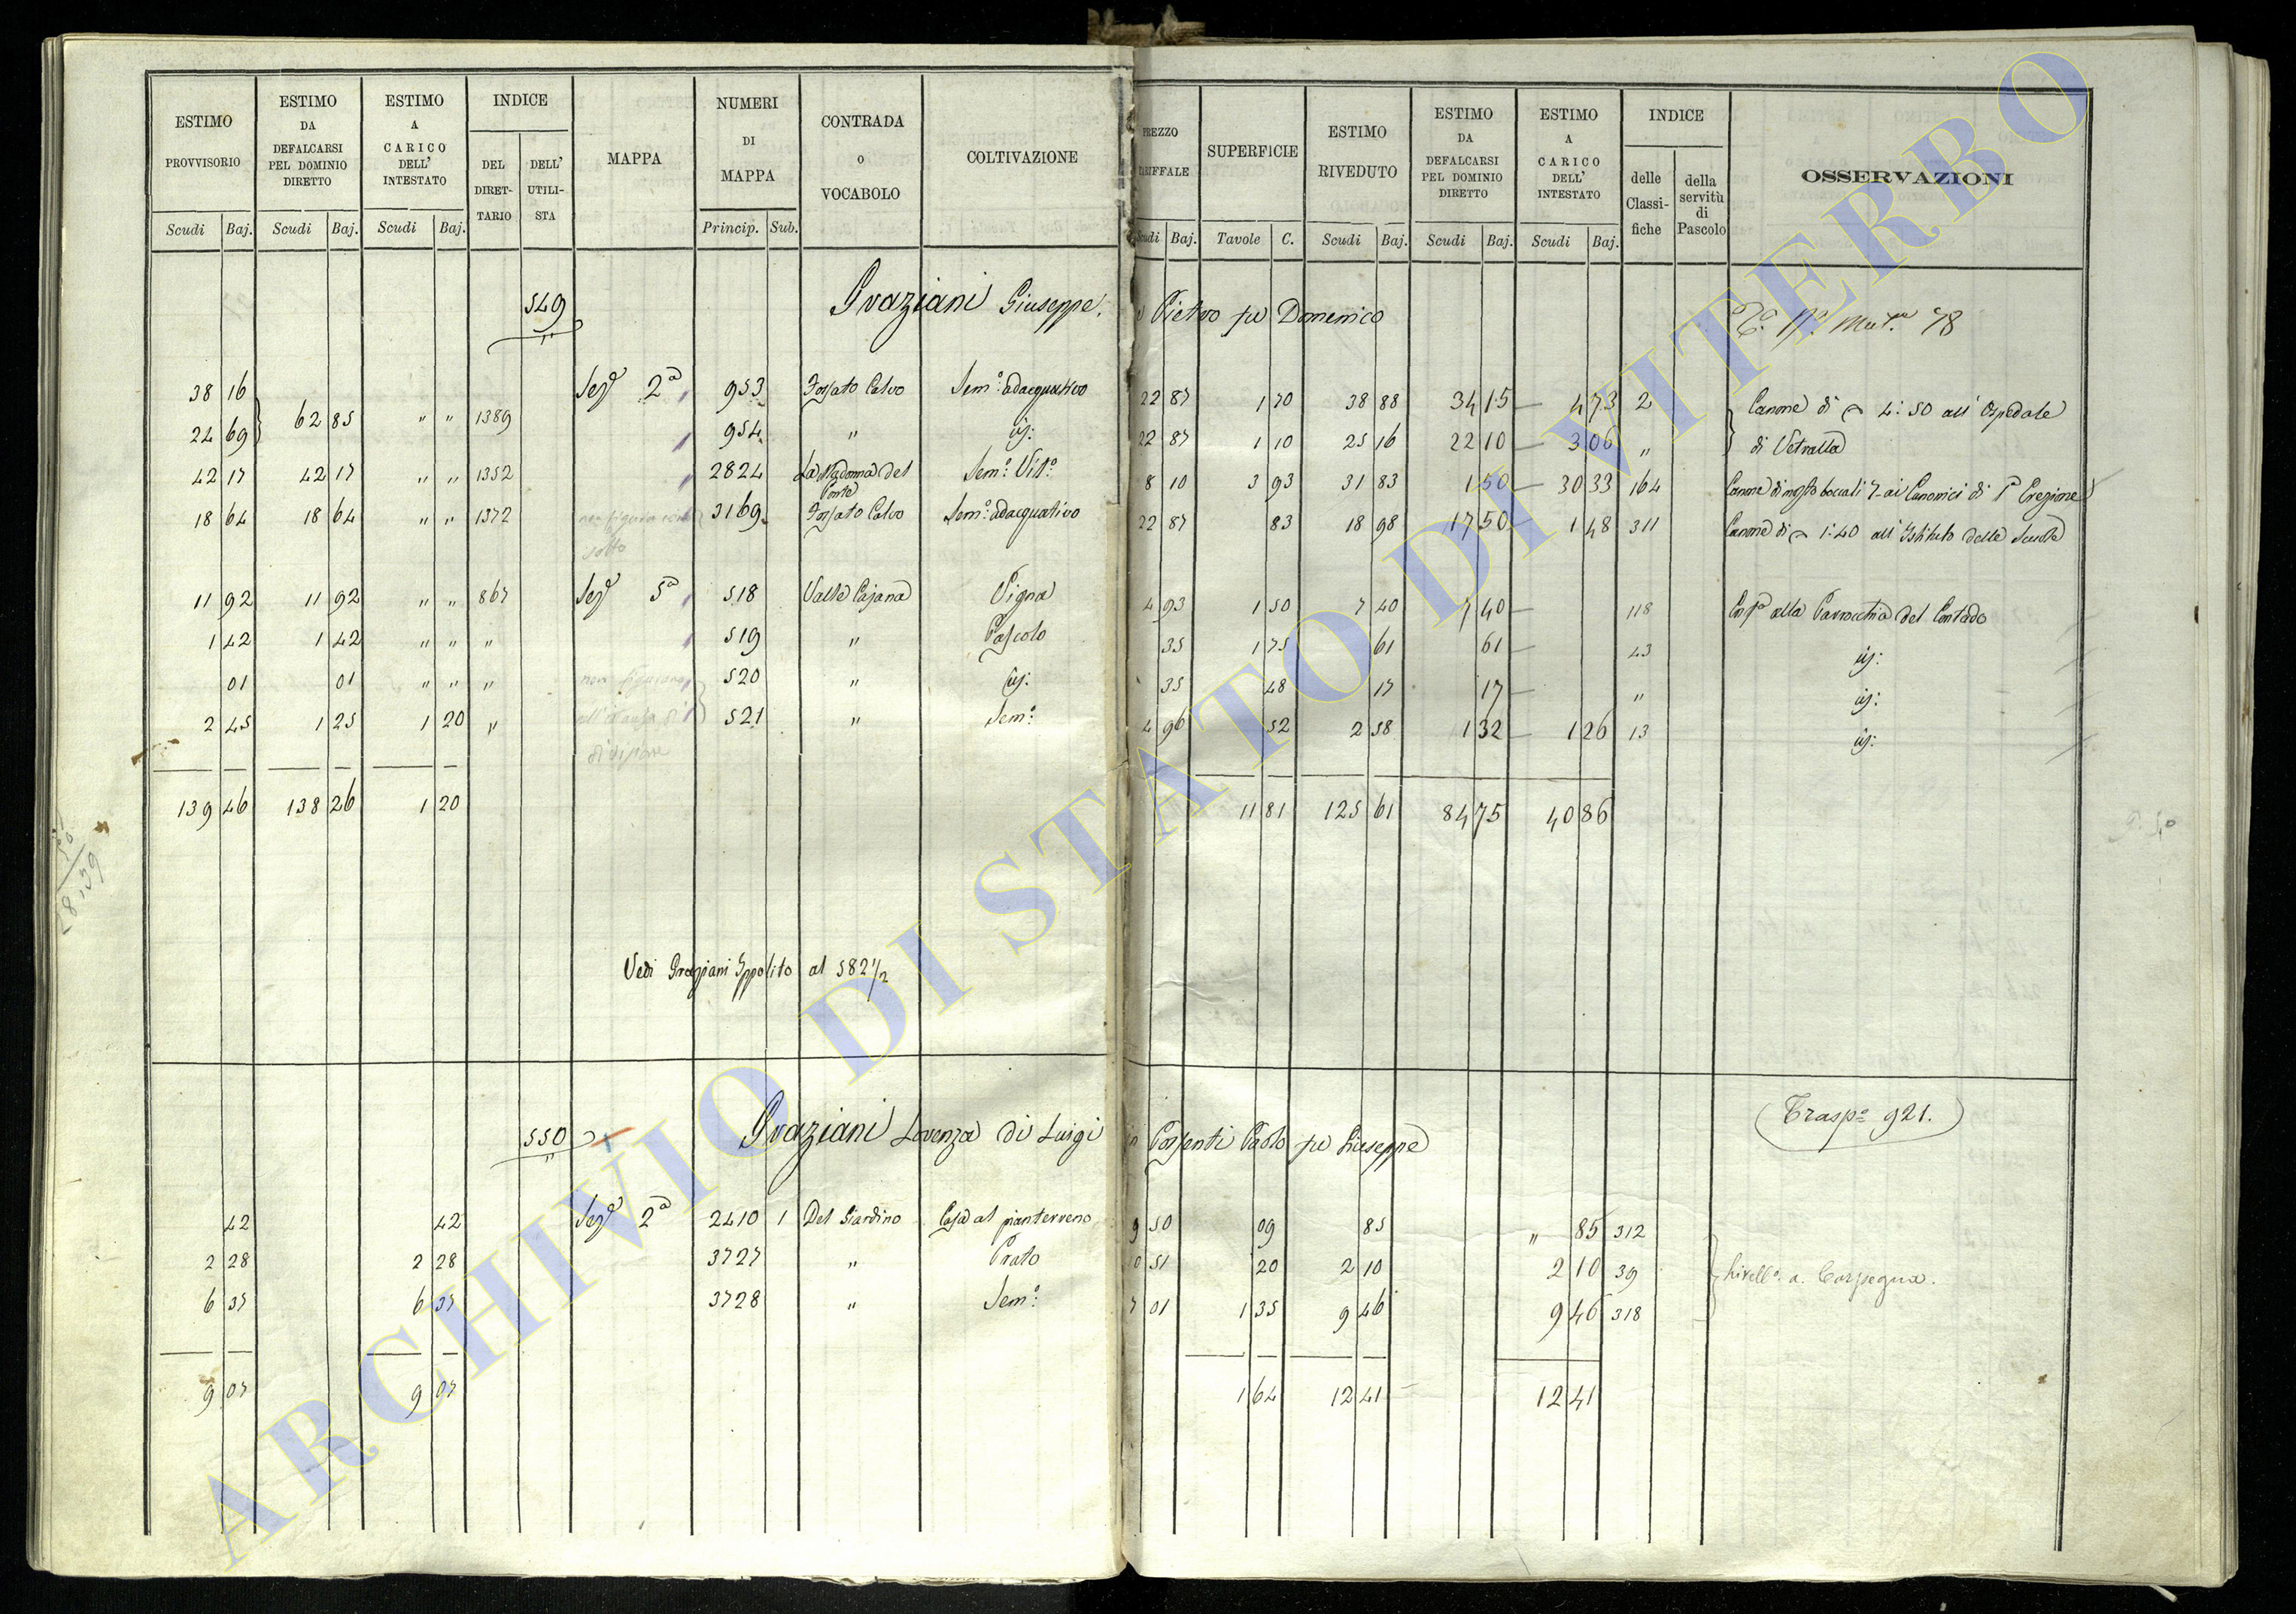 ESTIMO PROVVISORIO Scudi Baj. ESTIMO DA DEFALCARSI PEL DOMINIO DIRETTO Scudi Baj. ESTIMO A CARICO DELL' INTESTATO Scudi Baj. INDICE DEL DIRET-TARIO DELL' UTILI-STA MAPPA NUMERI DI MAPPA Princip. Sub. CONTRADA O VOCABOLO COLTIVAZIONE
PREZZO TARIFFALE Scudi Baj. SUPERFICIE Tavole C. ESTIMO RIVEDUTO Scudi Baj. ESTIMO DA DEFALCARSI PEL DOMINIO DIRETTO Scudi Baj. ESTIMO A CARICO DELL' INTESTATO Scudi Baj. INDICE delle Classi-fiche della servitù di Pascolo OSSERVAZIONI
549 Graziani Giuseppe, e Pietro fu Domenico 78
38 16 Sezе 2a 953 Fossato Calvo Sem:o adacquativo 22 87 1 70 38 88 34 15 — 4 73 2 Canone di 4:50 all' Ospedale
24 69 } 62 85 " " 1389 954 " id: 22 87 1 10 25 16 22 10 — 3 06 " di Vetralla
42 17 42 17 " " 1352 2824 La Madonna del Ponte Sem:o Vit:o 8 10 3 93 31 83 1 50 — 30 33 164 Canone di mosto boccali 7. ai Canonici di Pa Erezione
18 64 18 64 " " 1372 3169 Fossato Calvo Sem:o adacquativo 22 87 83 18 98 17 50 — 1 48 311 Canone di 1:40 all' Istituto delle Scuole
11 92 11 92 " " 867 Seze 5a 518 Valle Cajana Vigna 4 93 1 50 7 40 7 40 — 118 alla Parrocchia del Contado
1 42 1 42 " " " 519 " Pascolo 35 1 75 61 61 — 43 id:
01 01 " " " 520 " id: 35 48 17 17 — " id:
2 45 1 25 1 20 " 521 " Sem:o 4 96 52 2 58 1 32 — 1 26 13 id:
139 46 138 26 1 20 11 81 125 61 84 75 40 86
Vedi Graziani Ippolito al 582 1/2
550 Graziani Lorenza di Luigi in Possenti Paolo fu Giuseppe (Traspo 921.)
42 42 Seze 2a 2410 1 Del Giardino Casa al pianterreno 9 50 09 85 " 85 312
2 28 2 28 3727 " Prato 10 51 20 2 10 2 10 39 Livello a Carpegna.
6 37 6 37 3728 " Sem:o 7 01 1 35 9 46 9 46 318
9 07 9 07 1 64 12 41 12 41
ARCHIVIO DI STATO DI VITERBO